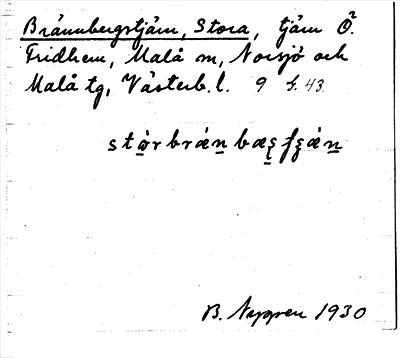 Brännbergstjärn, Stora, tjärn Ö.
Fridhem, Malå sn, Norsjö och
Malå tg, Västerb. l. 9 S. 43
B. Nygren 1930